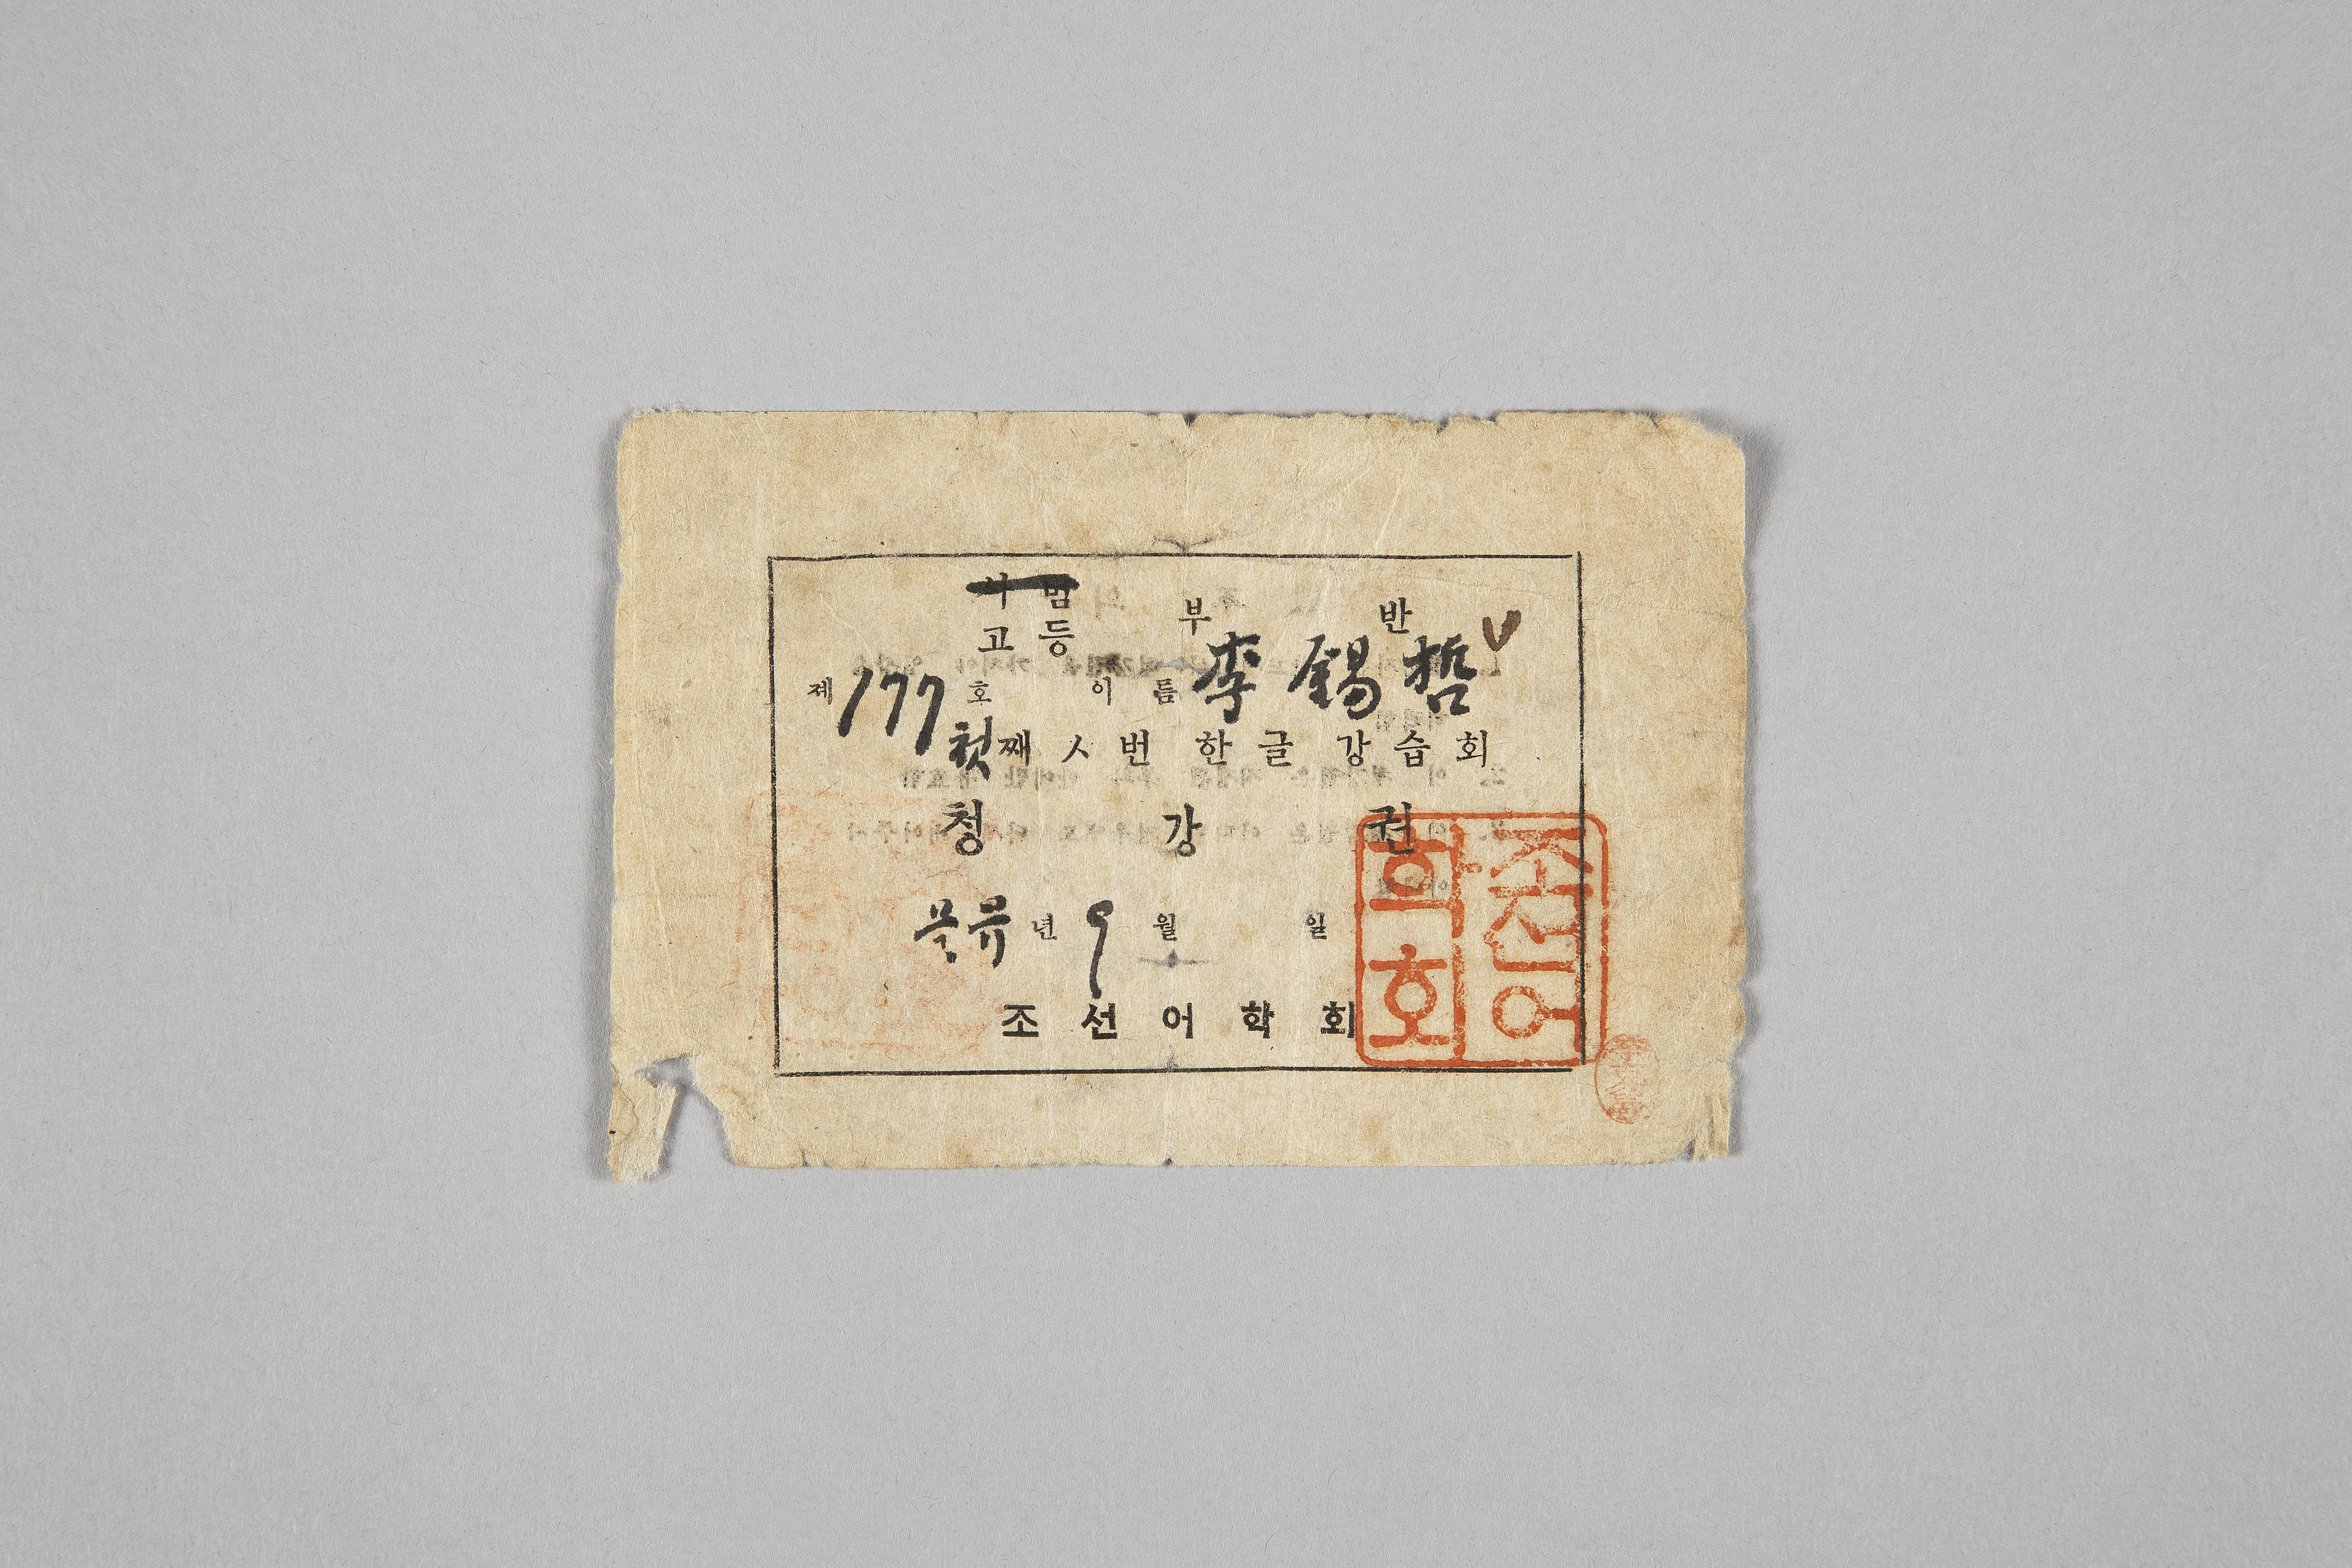 사범
고등 부 반 V
제 177 호 이름 李錫哲
첫째ㅅ번 한글 강습회
청강권
을유년 9월 일
조선어학회
조선어
학회